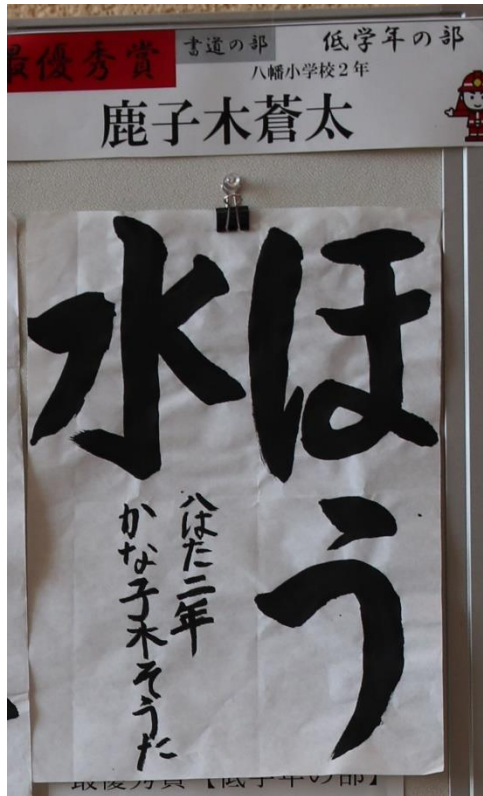 最優秀賞 書道の部 低学年の部
八幡小学校2年
鹿子木蒼太
ほう
水
八はた二年
かな子木そうた
最優秀賞【低学年の部】